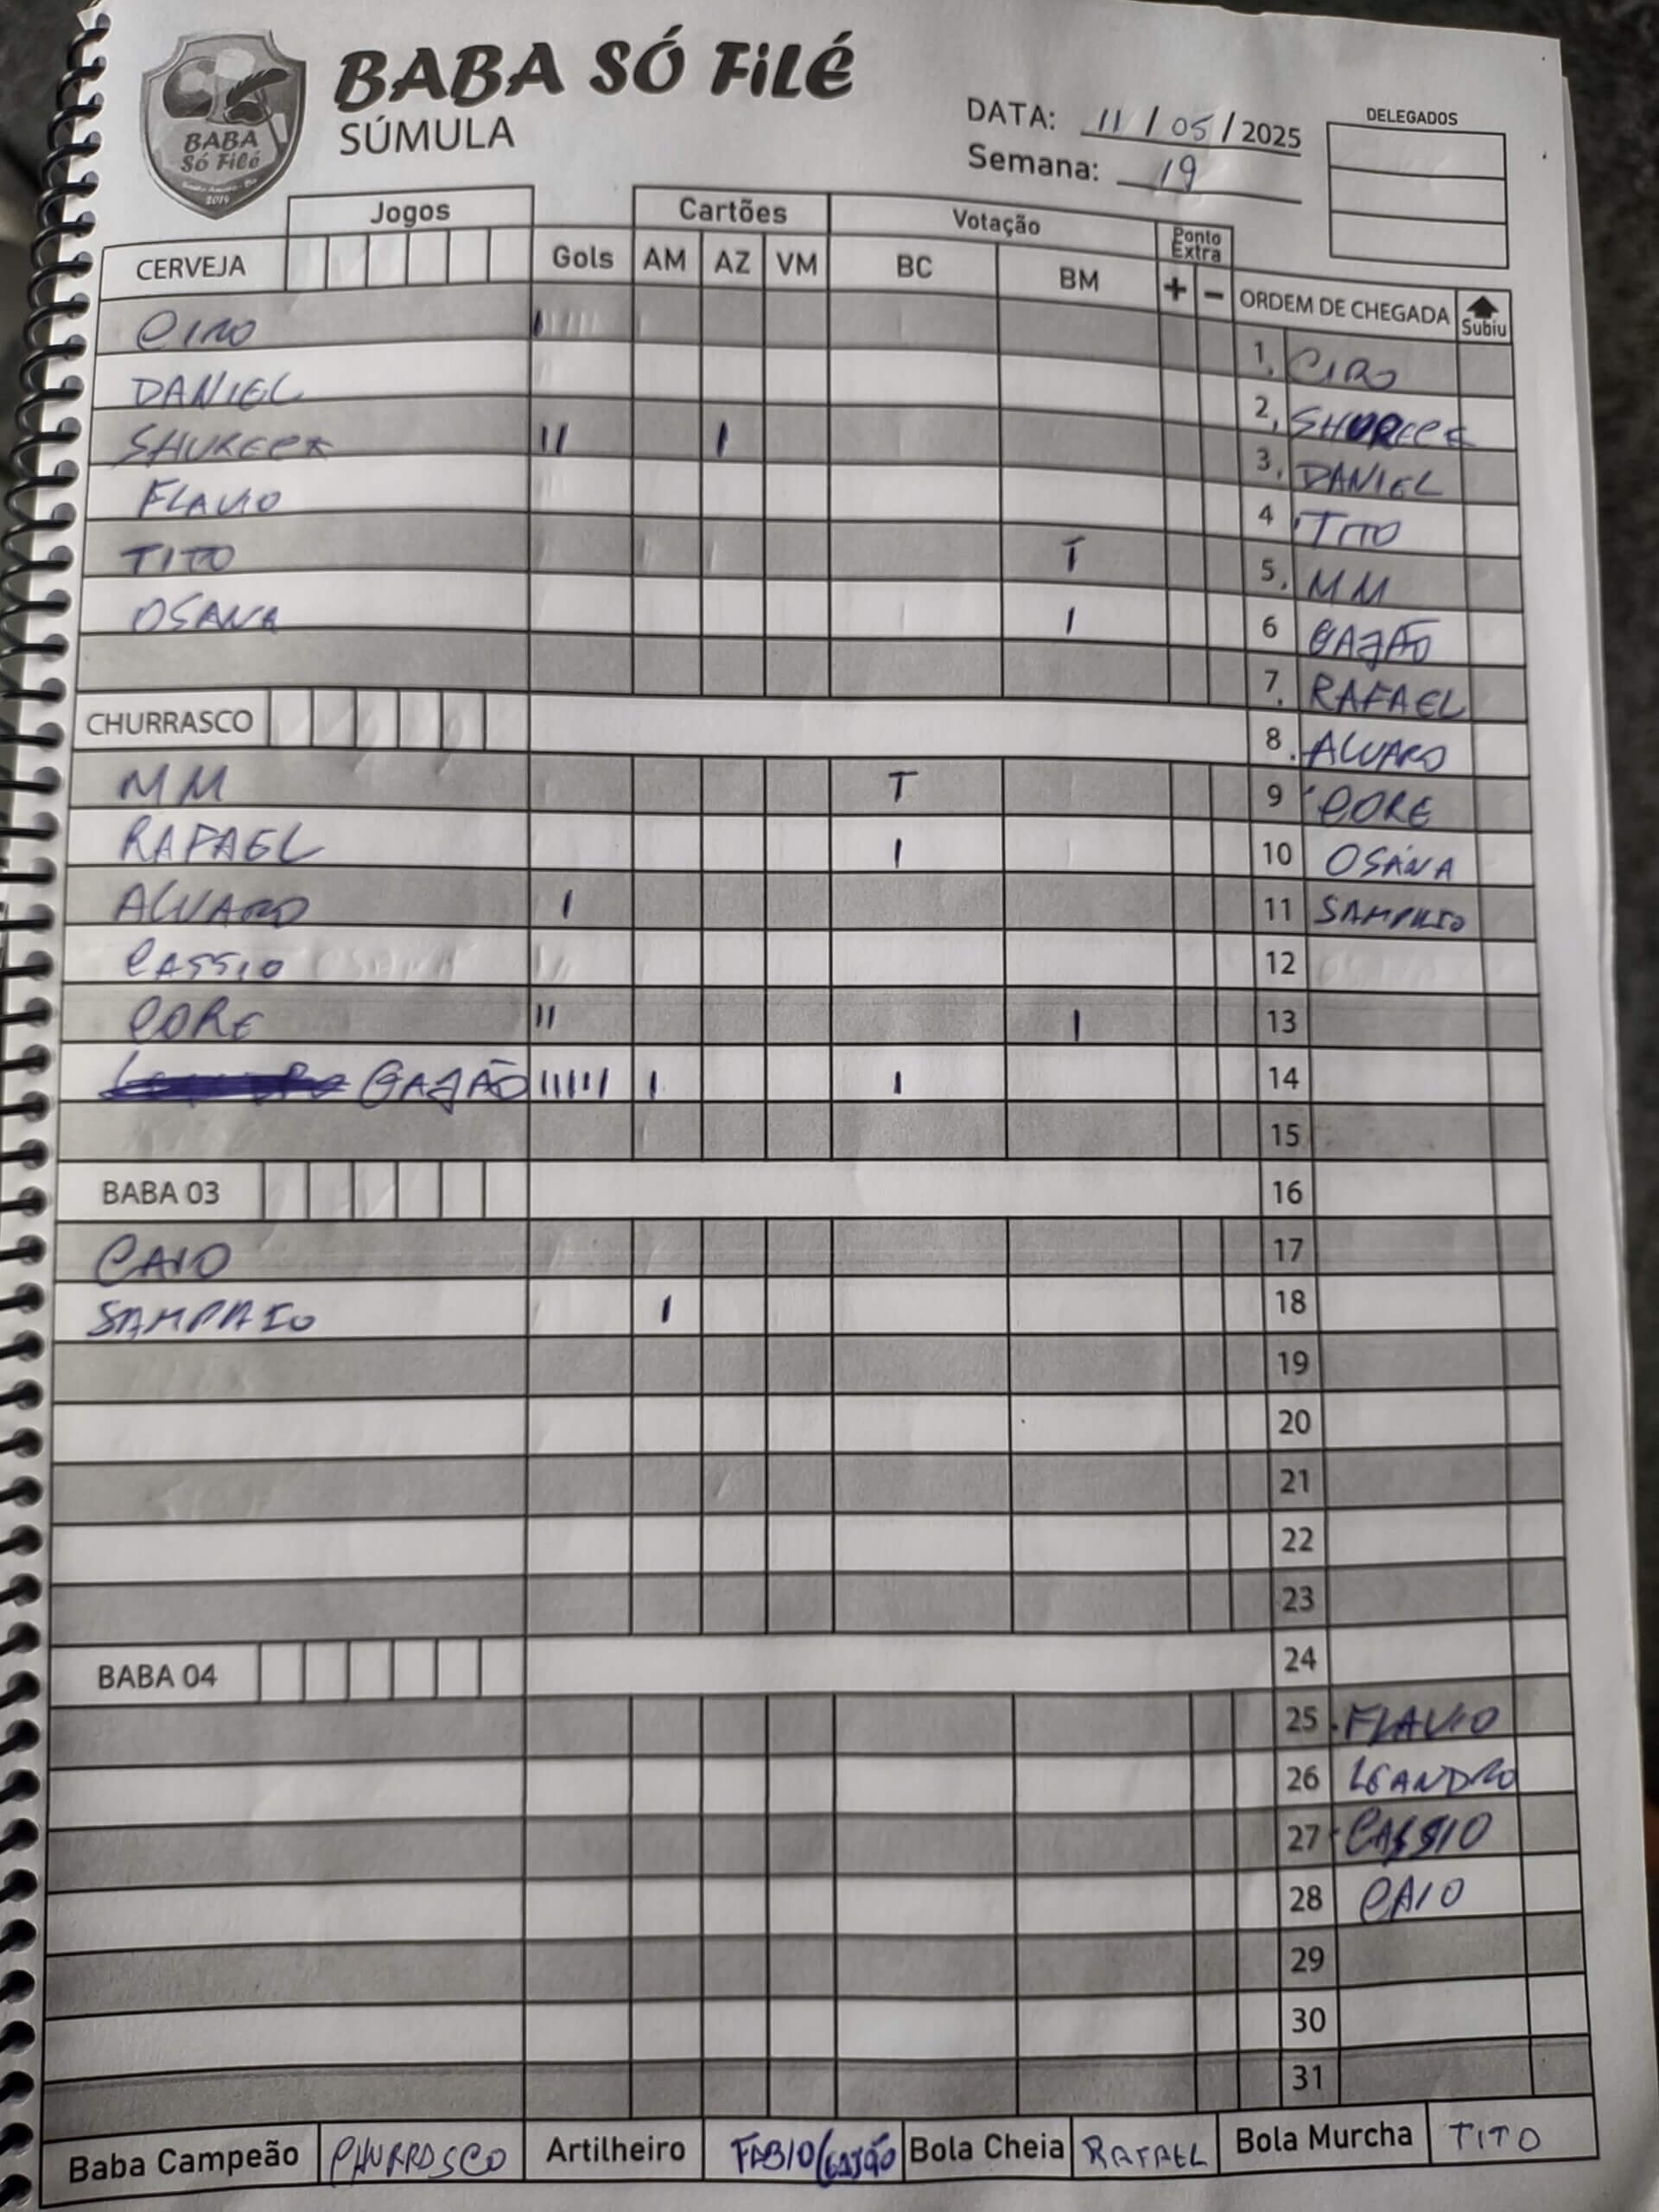 BABA SÓ FiLÉ
SÚMULA
BABA
Só Filé
2014
DATA: 11 / 05 / 2025
Semana: 19
DELEGADOS
Jogos
Cartões
Votação
Ponto Extra
CERVEJA Gols AM AZ VM BC BM + - ORDEM DE CHEGADA Subiu
CIRO I
DANIEL
SHURECK II I
FLAVIO
TITO T
OSANA I
CHURRASCO
MM T
RAFAEL I
ALVARO I
CASSIO
CORE II I
GAJÃO IIIIII I I
BABA 03
CAIO
SAMPAIO I
BABA 04
1. CIRO
2. 
3. DANIEL
4 TITO
5. MM
6 GAJÃO
7. RAFAEL
8. ALVARO
9 CORE
10 OSANA
11 SAMPAIO
12
13
14
15
16
17
18
19
20
21
22
23
24
25 FLAVIO
26 LEANDRO
27 CASSIO
28 CAIO
29
30
31
Baba Campeão CHURRASCO Artilheiro FABIO/GAJÃO Bola Cheia RAFAEL Bola Murcha TITO